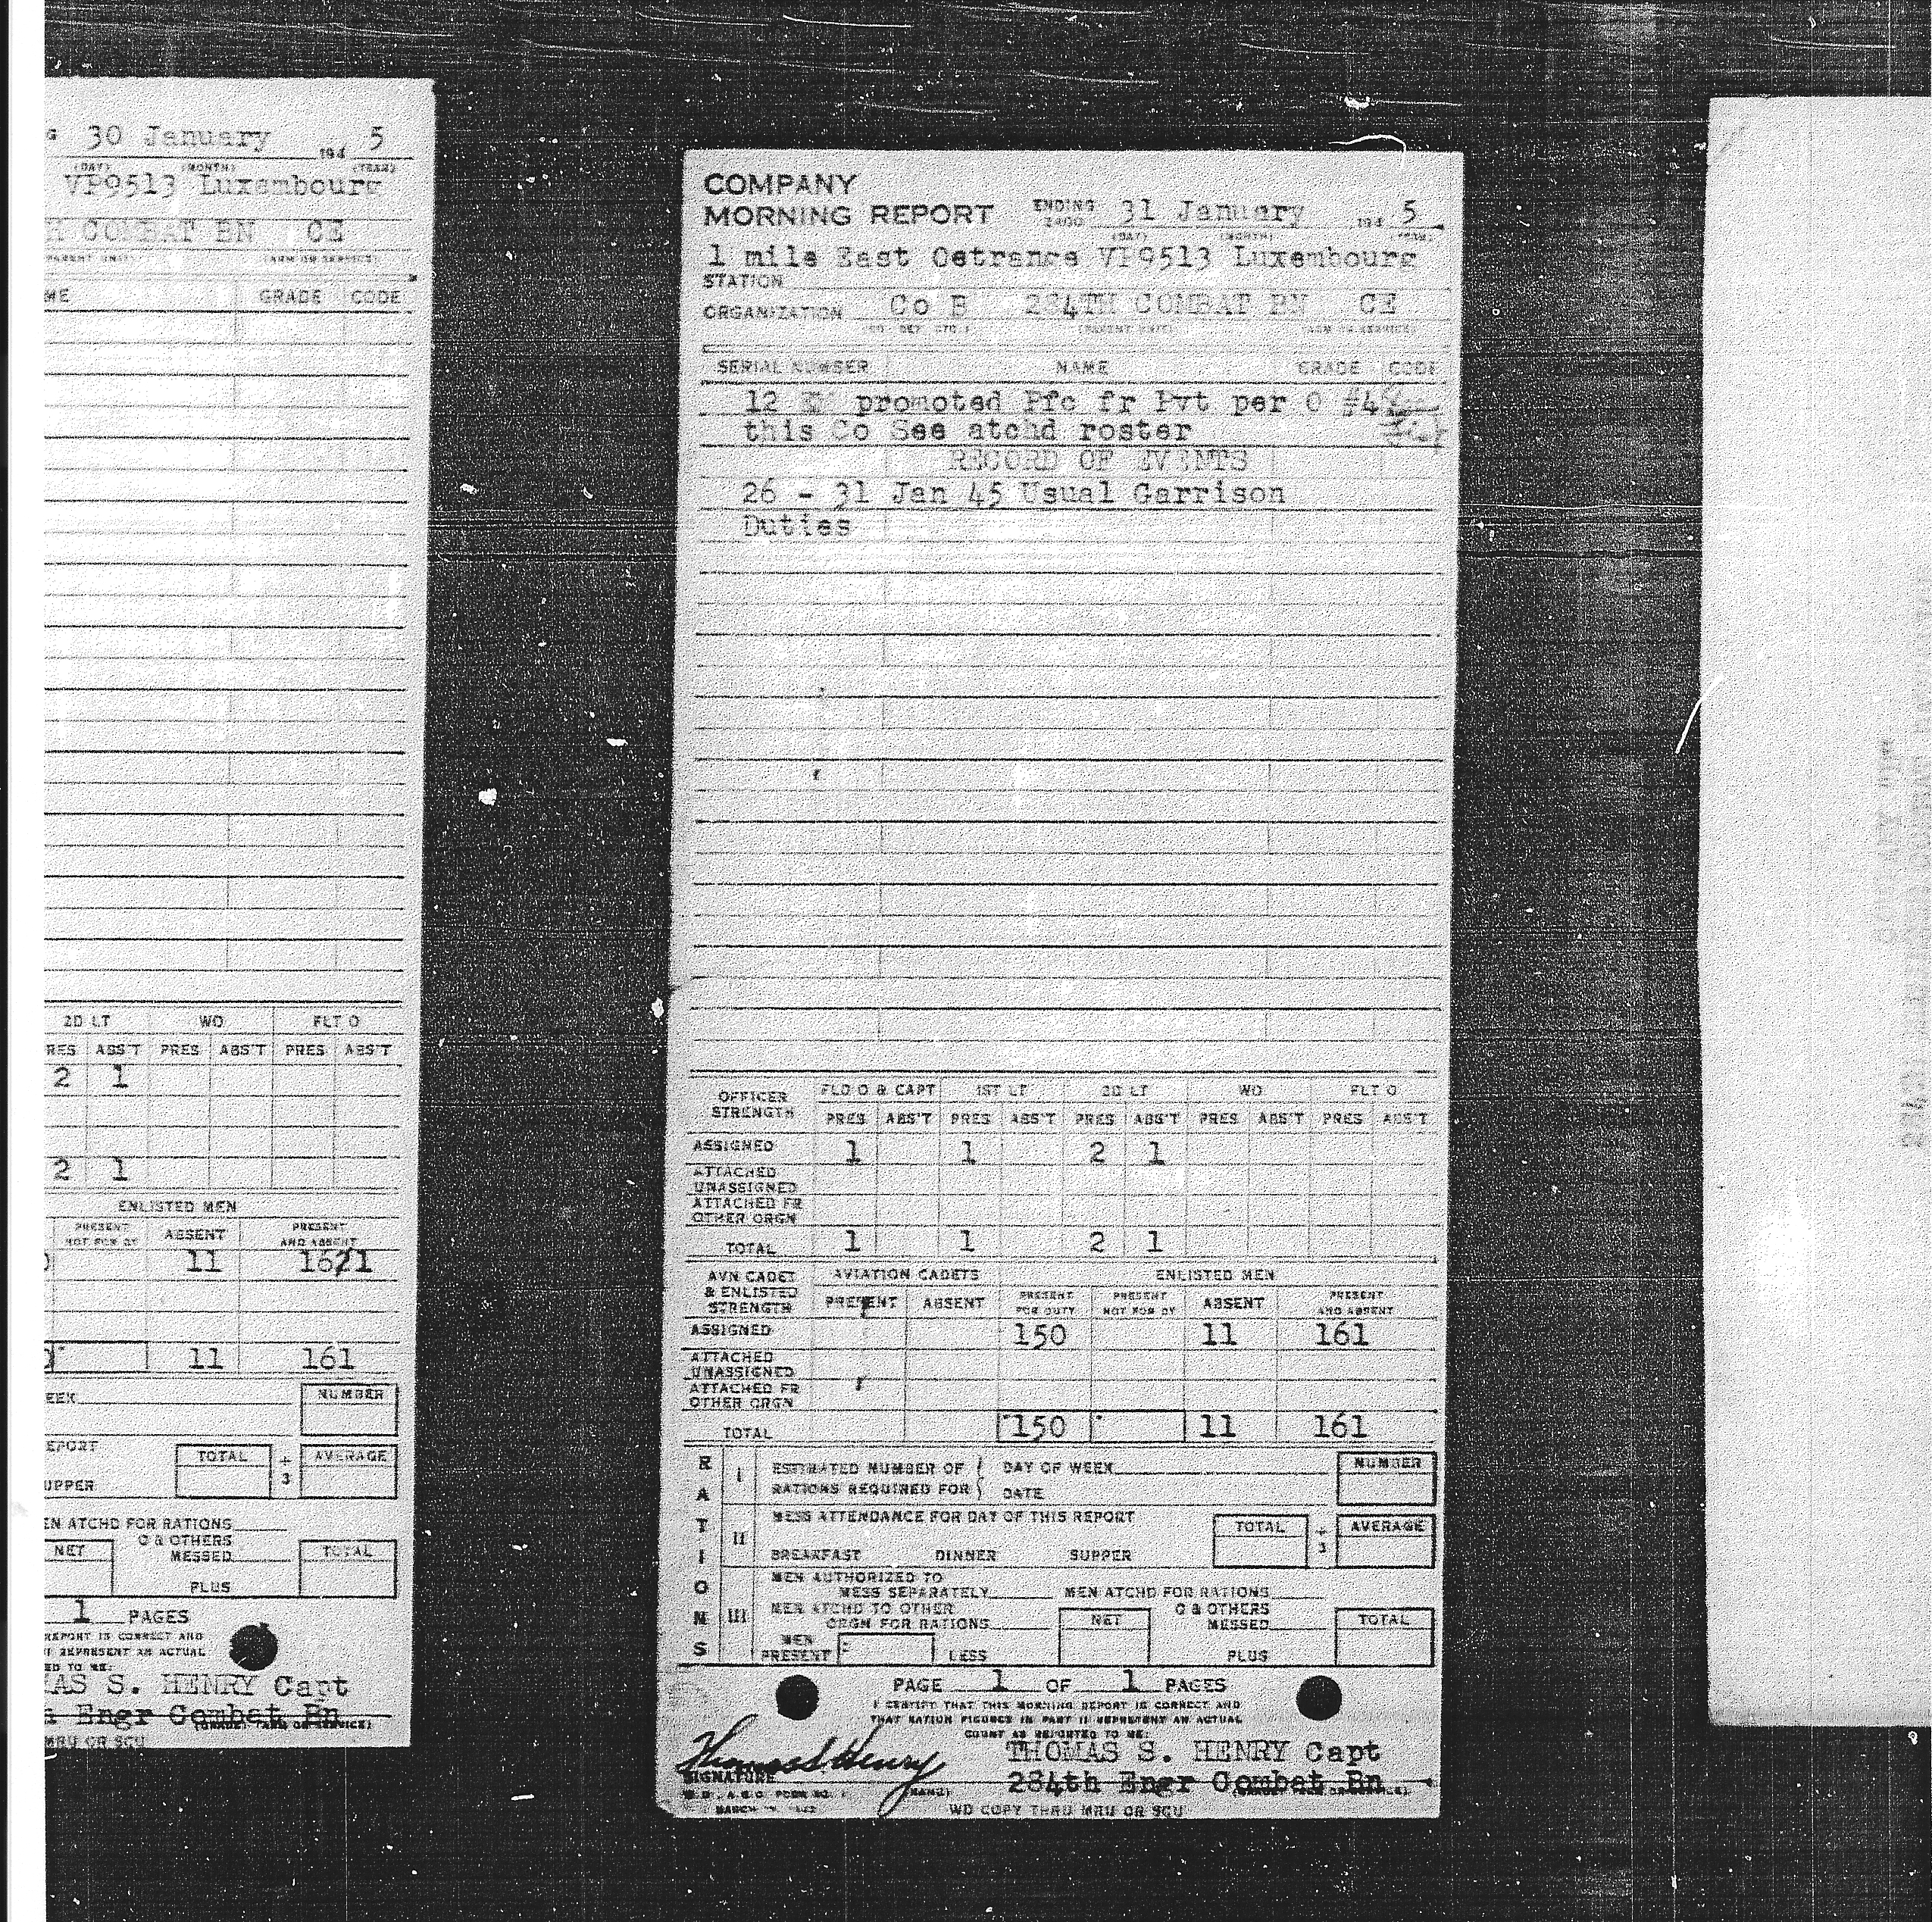 30 January 194 5
(DAY) (MONTH) (YEAR)
VP9513 Luxembourg
COMBAT BN CE
(PARENT UNIT) (ARM OR SERVICE)
GRADE CODE
2D LT WO FLT O
ABS'T PRES ABS'T PRES ABS'T
2 1
2 1
ENLISTED MEN
PRESENT NOT FOR DY ABSENT PRESENT AND ABSENT
11 16/1
11 161
NUMBER
TOTAL ÷ 3 AVERAGE
ATCHD FOR RATIONS
O & OTHERS
NET MESSED TOTAL
PLUS
1 PAGES
REPORT IS CORRECT AND
REPRESENT AN ACTUAL
TO ME:
S. HENRY Capt
Engr Combat Bn
MRU OR SCU
COMPANY
MORNING REPORT ENDING 2400 31 January 194 5
(DAY) (MONTH) (YEAR)
1 mile East Oetrange VP9513 Luxembourg
STATION
ORGANIZATION Co B 284TH COMBAT BN CE
(CO, DET, ETC.) (PARENT UNIT) (ARM OR SERVICE)
SERIAL NUMBER NAME GRADE CODE
12 EM promoted Pfc fr Pvt per O #4
this Co See atchd roster
RECORD OF EVENTS
26 - 31 Jan 45 Usual Garrison
Duties
OFFICER STRENGTH FLD O & CAPT 1ST LT 2D LT WO FLT O
PRES ABS'T PRES ABS'T PRES ABS'T PRES ABS'T PRES ABS'T
ASSIGNED 1 1 2 1
ATTACHED UNASSIGNED
ATTACHED FR OTHER ORGN
TOTAL 1 1 2 1
AVN CADET & ENLISTED STRENGTH AVIATION CADETS ENLISTED MEN
PRESENT ABSENT PRESENT FOR DUTY PRESENT NOT FOR DY ABSENT PRESENT AND ABSENT
ASSIGNED 150 11 161
ATTACHED UNASSIGNED
ATTACHED FR OTHER ORGN
TOTAL 150 11 161
RATIONS
I ESTIMATED NUMBER OF RATIONS REQUIRED FOR DAY OF WEEK NUMBER
DATE
II MESS ATTENDANCE FOR DAY OF THIS REPORT TOTAL ÷ 3 AVERAGE
BREAKFAST DINNER SUPPER
III MEN AUTHORIZED TO
MESS SEPARATELY MEN ATCHD FOR RATIONS
MEN ATCHD TO OTHER O & OTHERS
ORGN FOR RATIONS NET MESSED TOTAL
MEN PRESENT LESS PLUS
PAGE 1 OF 1 PAGES
I CERTIFY THAT THIS MORNING REPORT IS CORRECT AND
THAT RATION FIGURES IN PART II REPRESENT AN ACTUAL
COUNT AS REPORTED TO ME:
Thomas S Henry THOMAS S. HENRY Capt
SIGNATURE 284th Engr Combat Bn
W.D., A.G.O. FORM NO. 1 (NAME)
WD COPY THRU MRU OR SCU